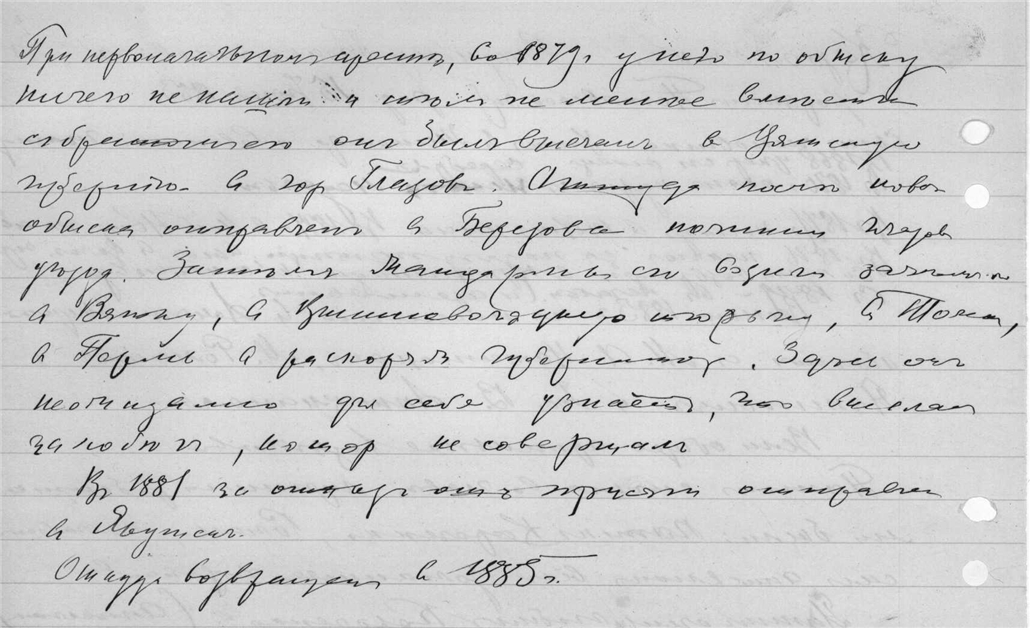 При первоначальном аресте, в 1879 г. у него по обыску
ничего не нашли и тем не менее
он был выслан в Вятскую
губернию в гор Глазов. Оттуда после новой
обыска отправлен в Березовские починки
уезда. Затем
в Вятку, в Вышневолоцкую тюрьму, в Томск,
в Пермь в распоряж губернатора. Здесь он
неожиданно для себя узнает, что выслан
за побег, котор не совершал
В 1881 за отказ от присяги отправлен
в Якутск.
Откуда возвращен в 1885 г.